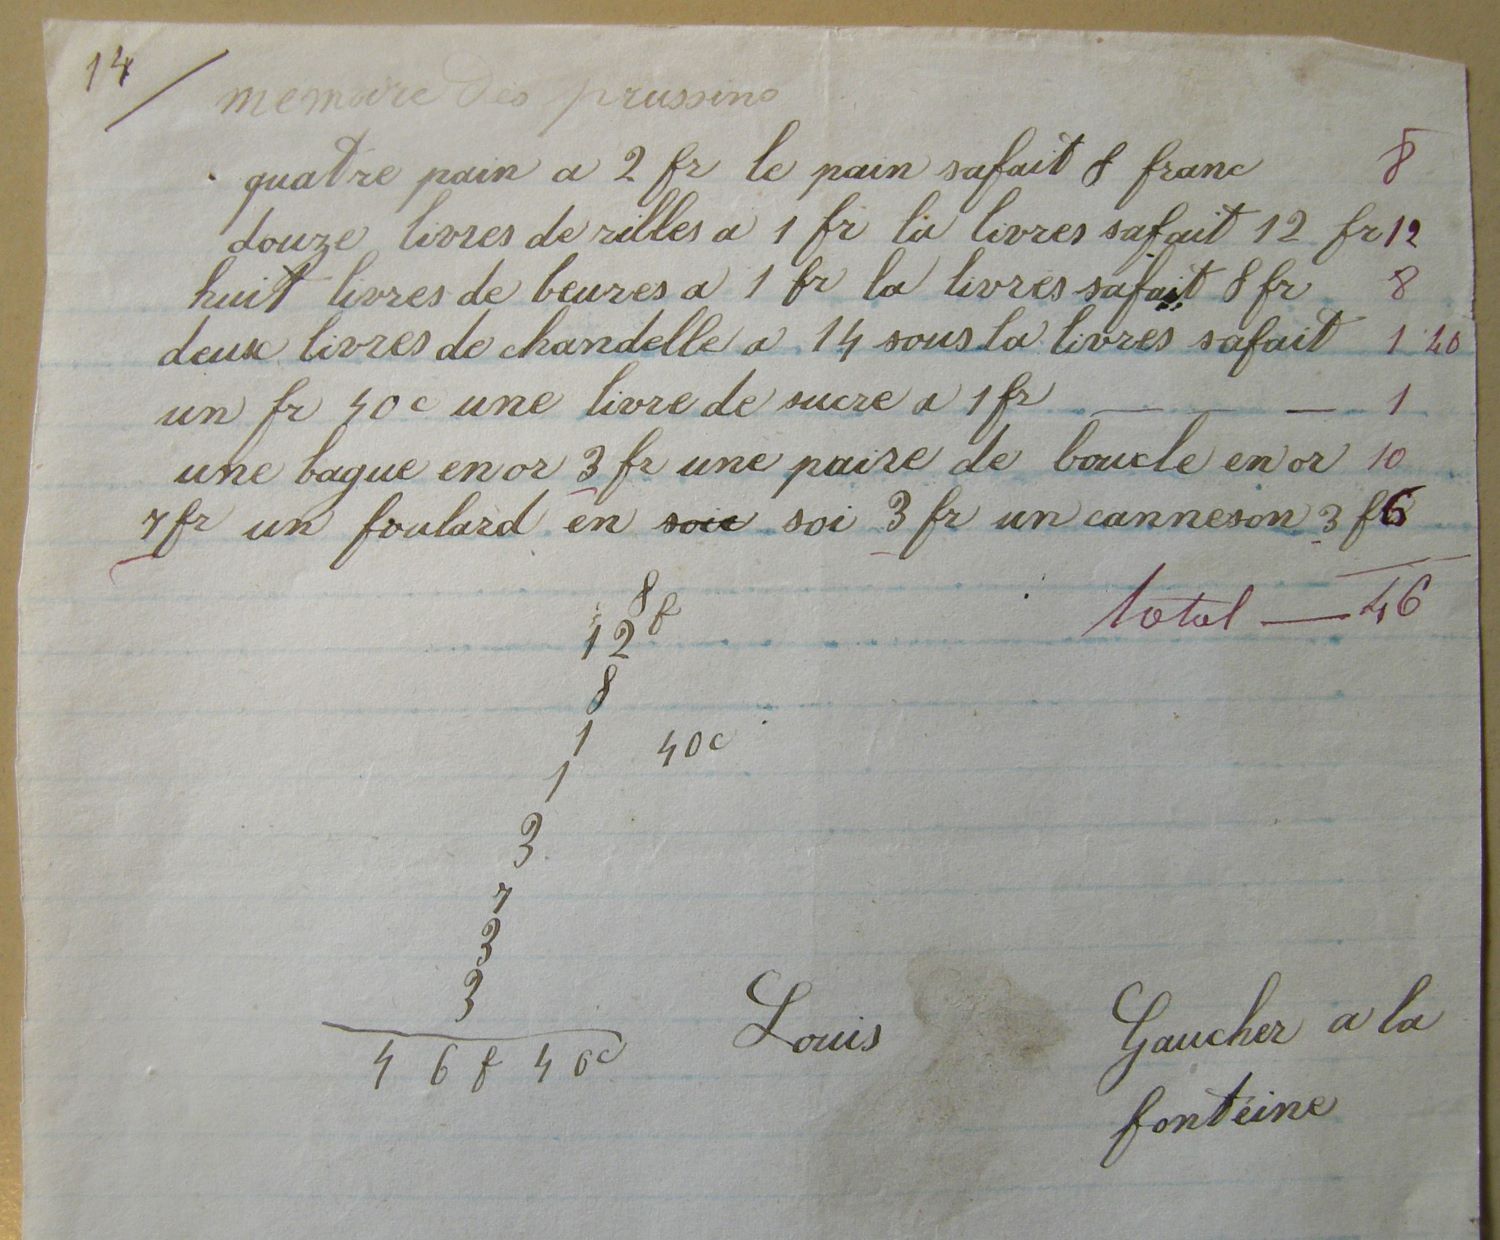 14
memoire des prussins
quatre pain a 2 fr le pain safait 8 franc 8
douze livres de rilles a 1 fr la livres safait 12 fr 12
huit livres de beures a 1 fr la livres safait 8 fr 8
deux livres de chandelle a 14 sous la livres safait 1 40
un fr 40 c une livre de sucre a 1 fr — — — 1
une bague en or 3 fr une paire de boucle en or 10
7 fr un foulard en soie soi 3 fr un canneson 3 f 6
total — 46
8 f
12
8
1 40c
1
3
7
3
3
46 f 40c
Louis Gaucher a la
fonteine